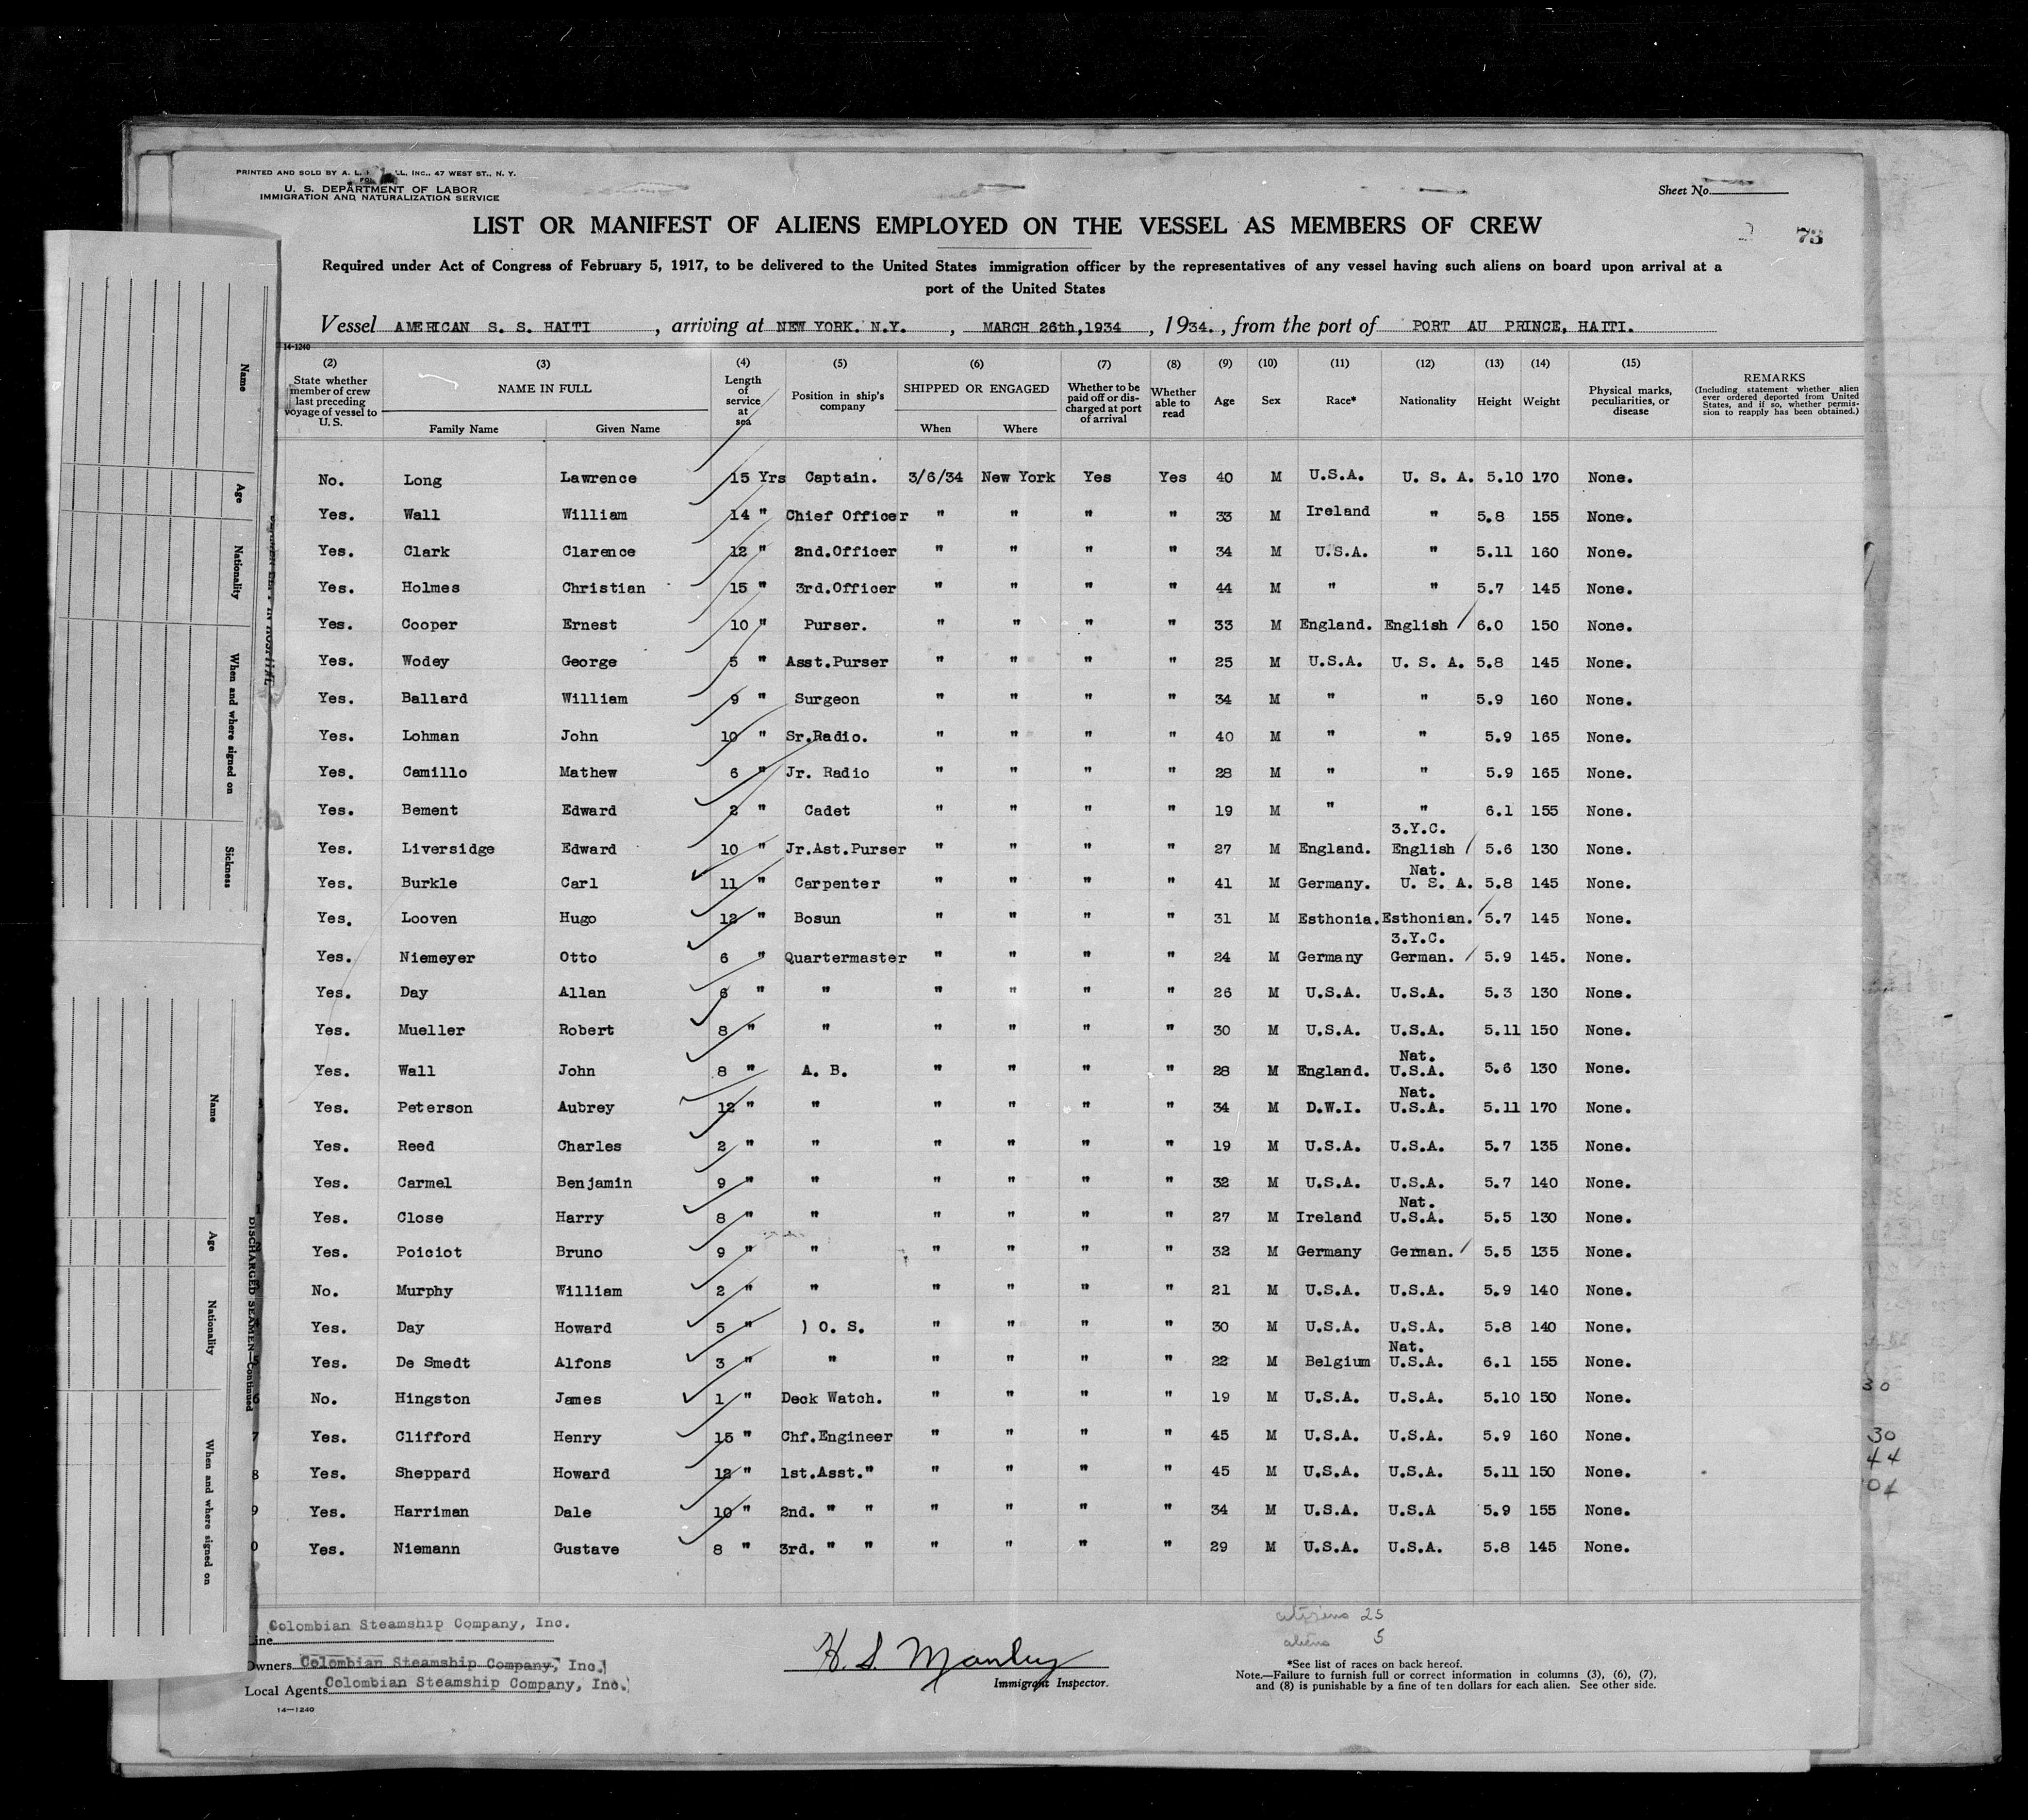 PRINTED AND SOLD BY A. L. LL, INC., 47 WEST ST., N. Y.
U. S. DEPARTMENT OF LABOR
IMMIGRATION AND NATURALIZATION SERVICE
Sheet No.
LIST OR MANIFEST OF ALIENS EMPLOYED ON THE VESSEL AS MEMBERS OF CREW
73
Required under Act of Congress of February 5, 1917, to be delivered to the United States immigration officer by the representatives of any vessel having such aliens on board upon arrival at a
port of the United States
Vessel AMERICAN S. S. HAITI, arriving at NEW YORK. N.Y., MARCH 26th,1934, 1934., from the port of PORT AU PRINCE, HAITI.
14-1240
(2) (3) (4) (5) (6) (7) (8) (9) (10) (11) (12) (13) (14) (15)
State whether member of crew last preceding voyage of vessel to U. S. NAME IN FULL Family Name Given Name Length of service at sea Position in ship's company SHIPPED OR ENGAGED When Where Whether to be paid off or discharged at port of arrival Whether able to read Age Sex Race* Nationality Height Weight Physical marks, peculiarities, or disease REMARKS (Including statement whether alien ever ordered deported from United States, and if so, whether permission to reapply has been obtained.)
No. Long Lawrence 15 Yrs Captain. 3/6/34 New York Yes Yes 40 M U.S.A. U. S. A. 5.10 170 None.
Yes. Wall William 14 " Chief Officer " " " " 33 M Ireland " 5.8 155 None.
Yes. Clark Clarence 12 " 2nd.Officer " " " " 34 M U.S.A. " 5.11 160 None.
Yes. Holmes Christian 15 " 3rd.Officer " " " " 44 M " " 5.7 145 None.
Yes. Cooper Ernest 10 " Purser. " " " " 33 M England. English 6.0 150 None.
Yes. Wodey George 5 " Asst.Purser " " " " 25 M U.S.A. U. S. A. 5.8 145 None.
Yes. Ballard William 9 " Surgeon " " " " 34 M " " 5.9 160 None.
Yes. Lohman John 10 " Sr.Radio. " " " " 40 M " " 5.9 165 None.
Yes. Camillo Mathew 6 " Jr. Radio " " " " 28 M " " 5.9 165 None.
Yes. Bement Edward 2 " Cadet " " " " 19 M " " 6.1 155 None.
3.Y.C.
Yes. Liversidge Edward 10 " Jr.Ast.Purser " " " " 27 M England. English 5.6 130 None.
Nat.
Yes. Burkle Carl 11 " Carpenter " " " " 41 M Germany. U. S. A. 5.8 145 None.
Yes. Looven Hugo 12 " Bosun " " " " 31 M Esthonia. Esthonian. 5.7 145 None.
3.Y.C.
Yes. Niemeyer Otto 6 " Quartermaster " " " " 24 M Germany German. 5.9 145. None.
Yes. Day Allan 6 " " " " " " 26 M U.S.A. U.S.A. 5.3 130 None.
Yes. Mueller Robert 8 " " " " " " 30 M U.S.A. U.S.A. 5.11 150 None.
Nat.
Yes. Wall John 8 " A. B. " " " " 28 M England. U.S.A. 5.6 130 None.
Nat.
Yes. Peterson Aubrey 12 " " " " " " 34 M D.W.I. U.S.A. 5.11 170 None.
Yes. Reed Charles 2 " " " " " " 19 M U.S.A. U.S.A. 5.7 135 None.
Yes. Carmel Benjamin 9 " " " " " " 32 M U.S.A. U.S.A. 5.7 140 None.
Nat.
Yes. Close Harry 8 " " " " " " 27 M Ireland U.S.A. 5.5 130 None.
Yes. Poiciot Bruno 9 " " " " " " 32 M Germany German. 5.5 135 None.
No. Murphy William 2 " " " " " " 21 M U.S.A. U.S.A. 5.9 140 None.
Yes. Day Howard 5 " ) O. S. " " " " 30 M U.S.A. U.S.A. 5.8 140 None.
Nat.
Yes. De Smedt Alfons 3 " " " " " " 22 M Belgium U.S.A. 6.1 155 None.
No. Hingston James 1 " Deck Watch. " " " " 19 M U.S.A. U.S.A. 5.10 150 None.
Yes. Clifford Henry 15 " Chf.Engineer " " " " 45 M U.S.A. U.S.A. 5.9 160 None.
Yes. Sheppard Howard 12 " 1st.Asst." " " " " 45 M U.S.A. U.S.A. 5.11 150 None.
Yes. Harriman Dale 10 " 2nd. " " " " " " 34 M U.S.A. U.S.A 5.9 155 None.
Yes. Niemann Gustave 8 " 3rd. " " " " " " 29 M U.S.A. U.S.A. 5.8 145 None.
Line Colombian Steamship Company, Inc.
Owners Colombian Steamship Company, Inc.
Local Agents Colombian Steamship Company, Inc.
14—1240
H. S. Manley
Immigrant Inspector.
citizens 25
aliens 5
*See list of races on back hereof.
Note.—Failure to furnish full or correct information in columns (3), (6), (7),
and (8) is punishable by a fine of ten dollars for each alien. See other side.
Name
Age
Nationality
When and where signed on
Sickness
Name
Age
Nationality
When and where signed on
DISCHARGED SEAMEN—Continued
30
30
44
04